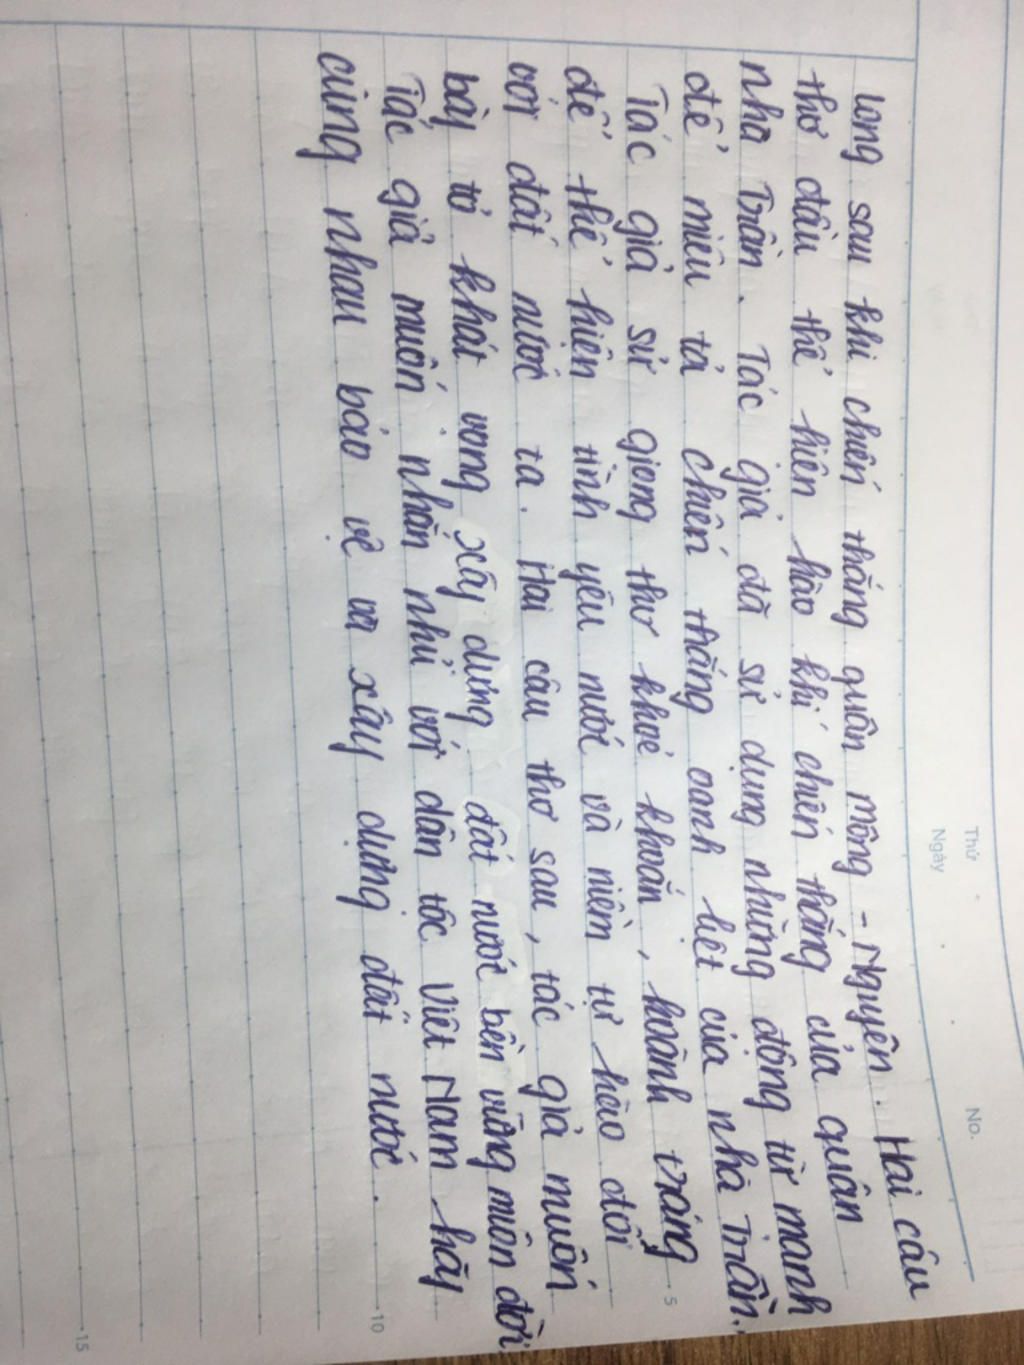 Thứ
Ngày
No.
long sau khi chiến thắng quân mông - Nguyên. Hai câu
thơ đầu thể hiện hào khí chiến thắng của quân
nhà Trần. Tác giả đã sử dụng những động từ manh
để miêu tả chiến thắng oanh liệt của nhà Trần.
Tác giả sử giọng thơ khoẻ khoắn, hoành tráng
để thể hiện tình yêu nước và niềm tự hào đối
với đất nước ta. Hai câu thơ sau, tác giả muốn
bày tỏ khát vọng xây dựng đất nước bền vững muôn đời
Tác giả muốn nhắn nhủ với dân tộc Việt Nam hãy
cùng nhau bảo vệ và xây dựng đất nước.
5
10
15